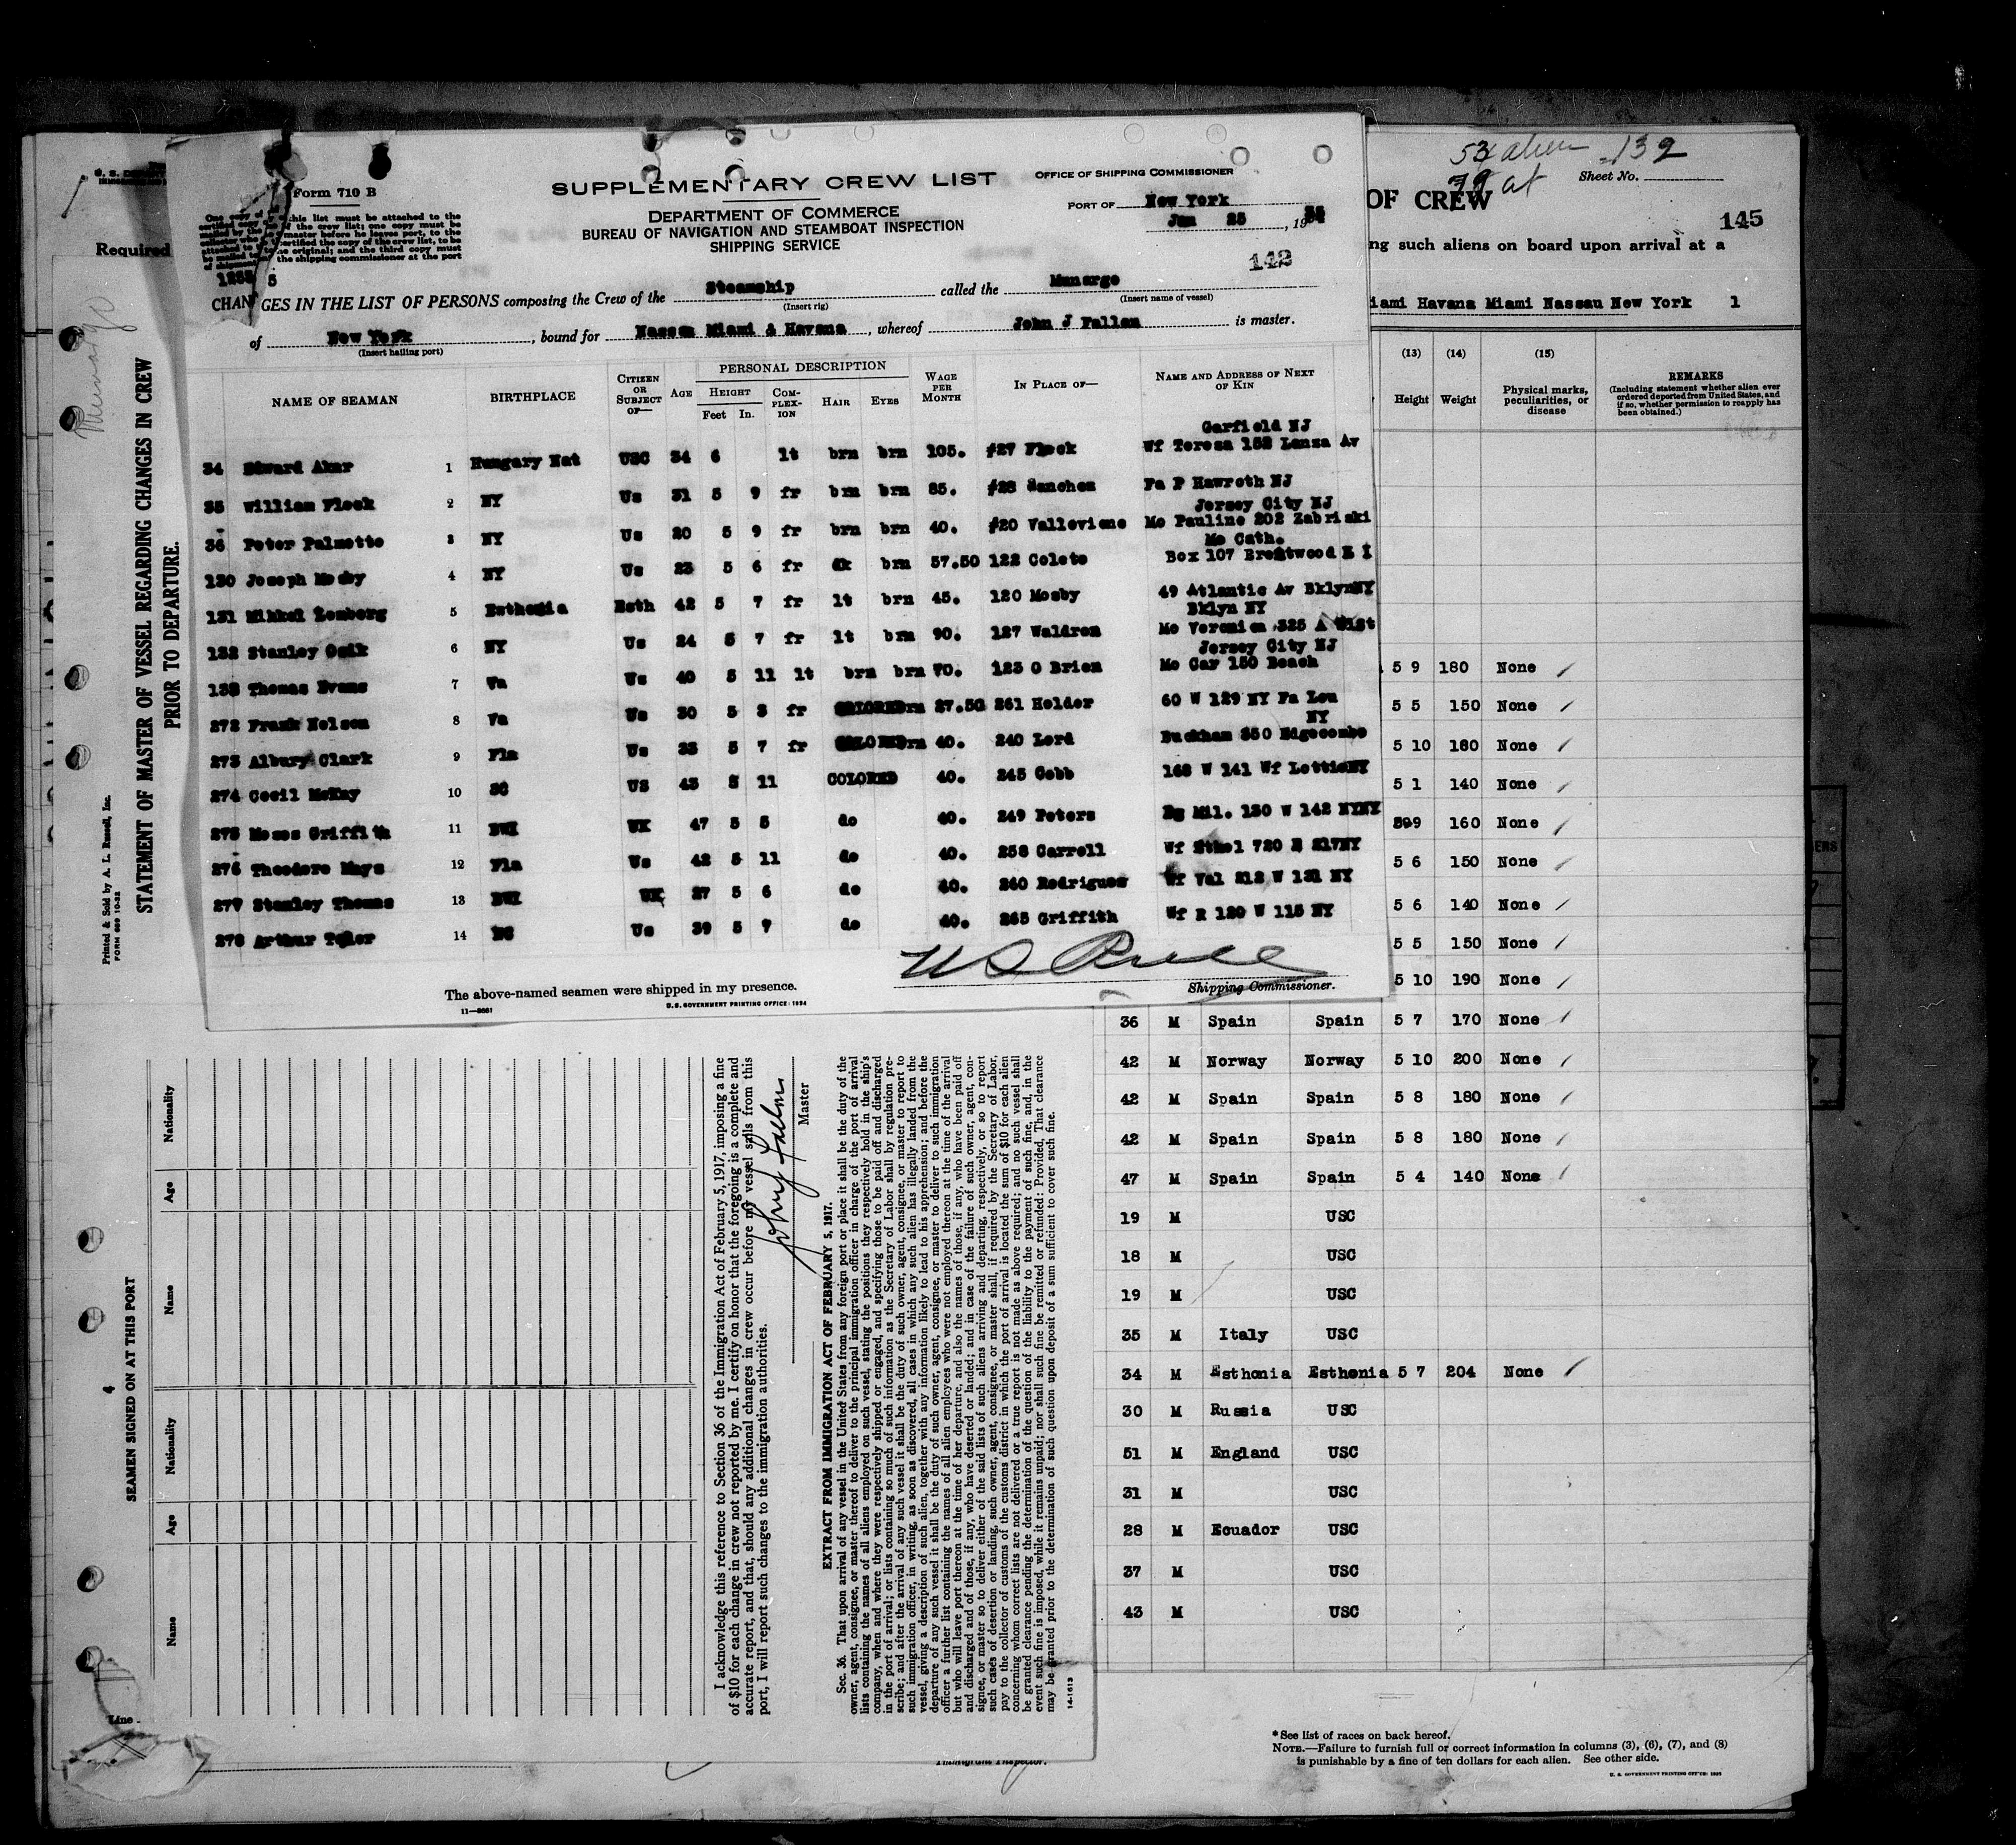 Form 710 B
One copy of this list must be attached to the
certified copy of the crew list; one copy must be
mailed by the master before he leaves port, to the
collector who certified the copy of the crew list, to be
attached to the original; and the third copy must
be mailed to the shipping commissioner at the port
of shipment
SUPPLEMENTARY CREW LIST
DEPARTMENT OF COMMERCE
BUREAU OF NAVIGATION AND STEAMBOAT INSPECTION
SHIPPING SERVICE
OFFICE OF SHIPPING COMMISSIONER
PORT OF New York
Jan 25, 19
142
CHANGES IN THE LIST OF PERSONS composing the Crew of the Steamship called the Munargo
(Insert rig) (Insert name of vessel)
of New York, bound for Nassau Miami & Havana, whereof John J Fallon is master.
(Insert hailing port)
NAME OF SEAMAN BIRTHPLACE CITIZEN OR SUBJECT OF— AGE PERSONAL DESCRIPTION HEIGHT Feet In. COMPLEXION HAIR EYES WAGE PER MONTH IN PLACE OF— NAME AND ADDRESS OF NEXT OF KIN
Garfield NJ
34 Edward Aknr 1 Hungary Nat USC 34 6 lt brn brn 105. #27 Flock Wf Teresa 152 Lanza Av
35 William Flock 2 NY Us 31 5 9 fr brn brn 85. #28 Sanchez Fa P Haworth NJ
Jersey City NJ
36 Peter Palmotto 3 NY Us 20 5 9 fr brn brn 40. #20 Valleviene Mo Pauline 202 Zabriski
Mo Cath.
130 Joseph Mosby 4 NY Us 23 5 6 fr dk brn 57.50 122 Colete Box 107 Brentwood L I
131 Mihkel Lemberg 5 Esthonia Esth 42 5 7 fr lt brn 45. 120 Mosby 49 Atlantic Av BklynNY
Bklyn NY
132 Stanley Osik 6 NY Us 24 5 7 fr lt brn 90. 127 Waldron Mo Veronica 325 A
Jersey City NJ
133 Thomas Evans 7 Va Us 40 5 11 lt brn brn 70. 123 O Brien Mo Car 150 Beach
272 Frank Nelson 8 Va Us 30 5 3 fr COLORED 27.50 261 Holder 60 W 129 NY Fa Lou
NY
273 Albury Clark 9 Fla Us 33 5 7 fr COLORED 40. 240 Lord Buckham 350 Edgecombe
274 Cecil McKay 10 SC US 43 5 11 COLORED 40. 245 Cobb 168 W 141 Wf LottieNY
275 Moses Griffith 11 BWI UK 47 5 5 do 40. 249 Peters Mil. 130 W 142 NYNY
276 Theodore Mays 12 Fla Us 42 5 11 do 40. 258 Carroll Wf Ethel 720 E 217NY
277 Stanley Thomas 13 BWI UK 27 5 6 do 40. 260 Rodrigues Wf Val 212 W 131 NY
278 Arthur Tyler 14 Us 39 5 7 do 40. 265 Griffith Wf R 120 W 115 NY
The above-named seamen were shipped in my presence.
Shipping Commissioner.
11—8661
U.S. GOVERNMENT PRINTING OFFICE: 1934
Required
Munargo
STATEMENT OF MASTER OF VESSEL REGARDING CHANGES IN CREW
PRIOR TO DEPARTURE.
Printed & Sold by A. L. Russell, Inc.
FORM 689 10-32
4
SEAMEN SIGNED ON AT THIS PORT
Name Age Nationality Name Age Nationality
I acknowledge this reference to Section 36 of the Immigration Act of February 5, 1917, imposing a fine
of $10 for each change in crew not reported by me. I certify on honor that the foregoing is a complete and
accurate report, and that, should any additional changes in crew occur before my vessel sails from this
port, I will report such changes to the immigration authorities.
John J Fallon
Master
EXTRACT FROM IMMIGRATION ACT OF FEBRUARY 5, 1917.
Sec. 36. That upon arrival of any vessel in the United States from any foreign port or place it shall be the duty of the
owner, agent, consignee, or master thereof to deliver to the principal immigration officer in charge of the port of arrival
lists containing the names of all aliens employed on such vessel, stating the positions they respectively hold in the ship's
company, when and where they were respectively shipped or engaged, and specifying those to be paid off and discharged
in the port of arrival; or lists containing so much of such information as the Secretary of Labor shall by regulation pre-
scribe; and after the arrival of any such vessel it shall be the duty of such owner, agent, consignee, or master to report to
such immigration officer, in writing, as soon as discovered, all cases in which any such alien has illegally landed from the
vessel, giving a description of such alien, together with any information likely to lead to his apprehension; and before the
departure of any such vessel it shall be the duty of such owner, agent, consignee, or master to deliver to such immigration
officer a further list containing the names of all alien employees who were not employed thereon at the time of the arrival
but who will leave port thereon at the time of her departure, and also the names of those, if any, who have been paid off
and discharged and of those, if any, who have deserted or landed; and in case of the failure of such owner, agent, con-
signee, or master so to deliver either of the said lists of such aliens arriving and departing, respectively, or so to report
such cases of desertion or landing, such owner, agent, consignee, or master shall, if required by the Secretary of Labor,
pay to the collector of customs of the customs district in which the port of arrival is located the sum of $10 for each alien
concerning whom correct lists are not delivered or a true report is not made as above required; and no such vessel shall
be granted clearance pending the determination of the question of the liability to the payment of such fine, and, in the
event such fine is imposed, while it remains unpaid; nor shall such fine be remitted or refunded: Provided, That clearance
may be granted prior to the determination of such question upon deposit of a sum sufficient to cover such fine.
14-1613
Line
Immigrant Inspector.
53 alien 139
Sheet No.
OF CREW
145
ng such aliens on board upon arrival at a
iami Havana Miami Nassau New York 1
(13) (14) (15)
Height Weight Physical marks, peculiarities, or disease
REMARKS
(Including statement whether alien ever
ordered deported from United States, and
if so, whether permission to reapply has
been obtained.)
5 9 180 None
5 5 150 None
5 10 180 None
5 1 140 None
599 160 None
5 6 150 None
5 6 140 None
5 5 150 None
5 10 190 None
36 M Spain Spain 5 7 170 None
42 M Norway Norway 5 10 200 None
42 M Spain Spain 5 8 180 None
42 M Spain Spain 5 8 180 None
47 M Spain Spain 5 4 140 None
19 M USC
18 M USC
19 M USC
35 M Italy USC
34 M Esthonia Esthonia 5 7 204 None
30 M Russia USC
51 M England USC
31 M USC
28 M Ecuador USC
37 M USC
43 M USC
*See list of races on back hereof.
NOTE.—Failure to furnish full or correct information in columns (3), (6), (7), and (8)
is punishable by a fine of ten dollars for each alien. See other side.
U. S. GOVERNMENT PRINTING OFFICE: 1932